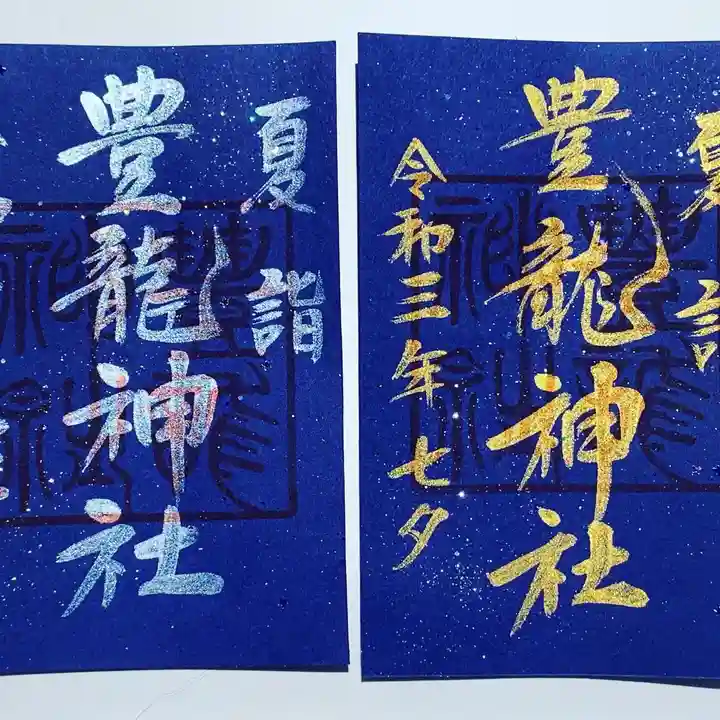 夏詣
豊龍神社
夏詣
豊龍神社
令和三年七夕